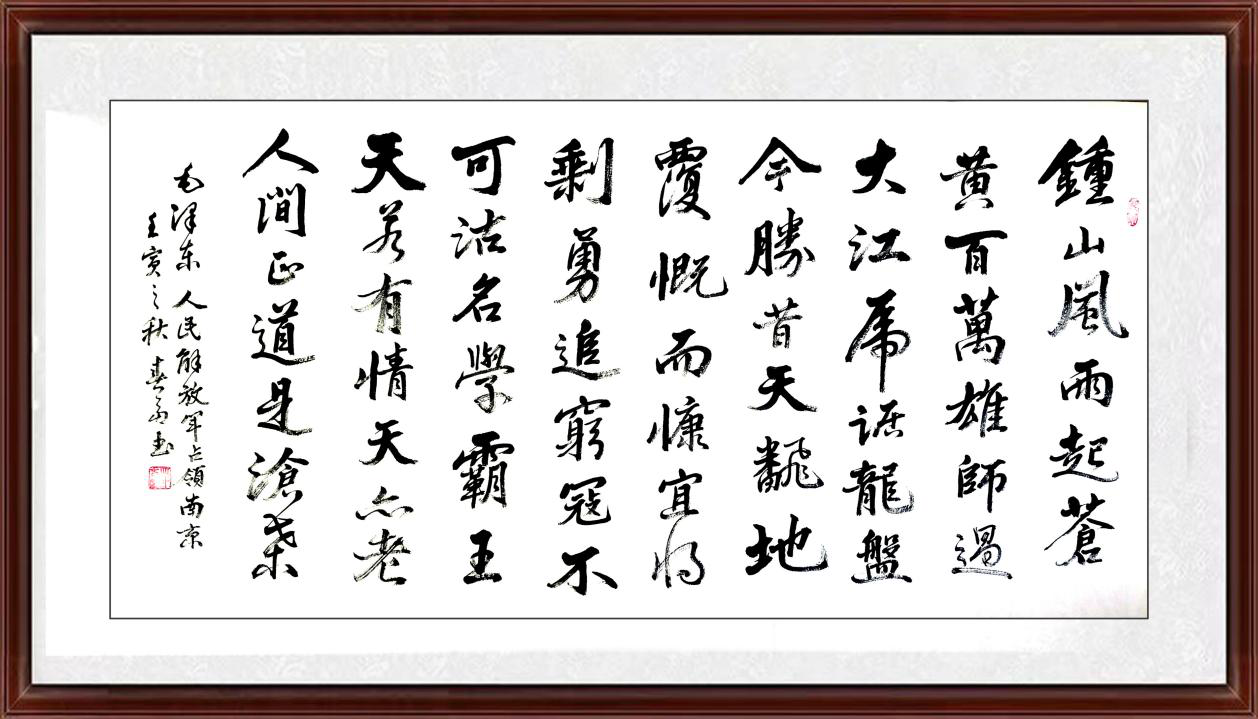 鍾山風雨起蒼
黄百萬雄師過
大江虎踞龍盤
今勝昔天飜地
覆慨而慷宜将
剩勇追窮寇不
可沽名學霸王
天若有情天亦老
人間正道是滄桒
毛泽东 人民解放军占領南京
壬寅之秋 春书